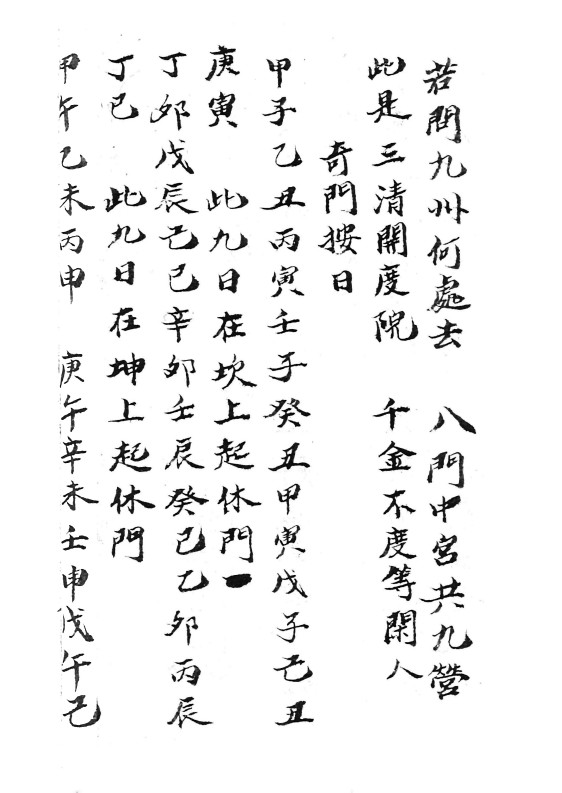 若問九州何處去　八門中宮共九營
此是三清開度院　千金不度等閑人
奇門按日
甲子乙丑丙寅壬子癸丑甲寅戊子己丑
庚寅　此九日在坎上起休門一
丁卯戊辰己巳辛卯壬辰癸巳乙卯丙辰
丁巳　此九日在坤上起休門
甲午乙未丙申　庚午辛未壬申戊午己